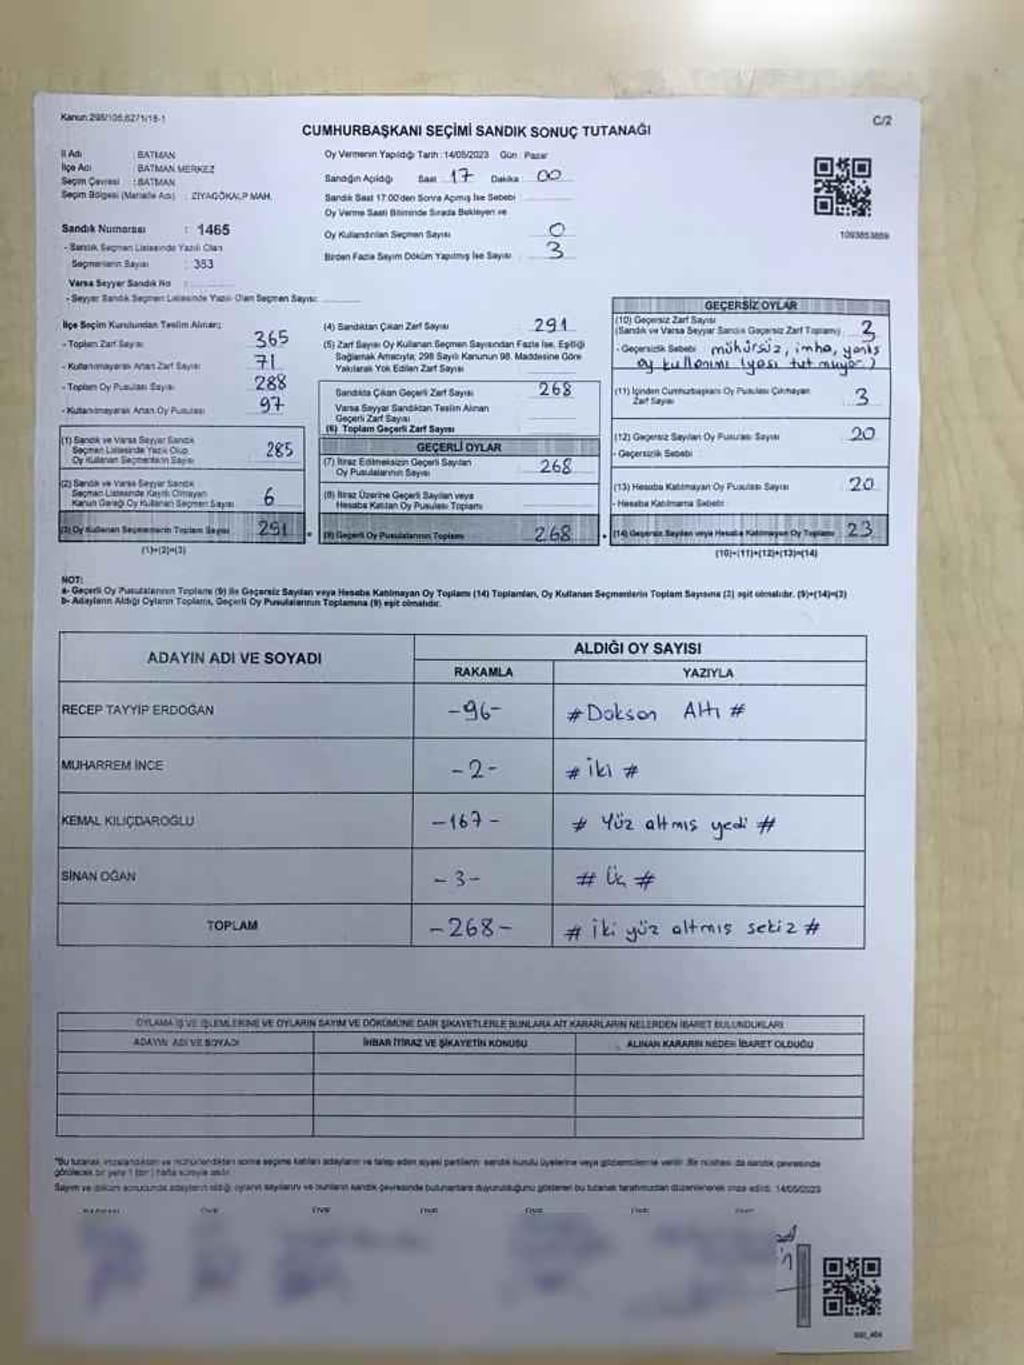 Kanun:298/105,6271/15-1
C/2
CUMHURBAŞKANI SEÇİMİ SANDIK SONUÇ TUTANAĞI
İl Adı : BATMAN
İlçe Adı : BATMAN MERKEZ
Seçim Çevresi : BATMAN
Seçim Bölgesi (Mahalle Adı) : ZİYAGÖKALP MAH.
Sandık Numarası : 1465
- Sandık Seçmen Listesinde Yazılı Olan
Seçmenlerin Sayısı : 353
Varsa Seyyar Sandık No :
- Seyyar Sandık Seçmen Listesinde Yazılı Olan Seçmen Sayısı:
Oy Vermenin Yapıldığı Tarih :14/05/2023 Gün : Pazar
Sandığın Açıldığı Saat 17 Dakika 00
Sandık Saat 17:00'den Sonra Açılmış İse Sebebi
Oy Verme Saati Bitiminde Sırada Bekleyen ve
Oy Kullandırılan Seçmen Sayısı 0
Birden Fazla Sayım Döküm Yapılmış İse Sayısı 3
1093853859
İlçe Seçim Kurulundan Teslim Alınan;
- Toplam Zarf Sayısı 365
- Kullanılmayarak Artan Zarf Sayısı 71
- Toplam Oy Pusulası Sayısı 288
- Kullanılmayarak Artan Oy Pusulası 97
(1) Sandık ve Varsa Seyyar Sandık
Seçmen Listesinde Yazılı Olup
Oy Kullanan Seçmenlerin Sayısı 285
(2) Sandık ve Varsa Seyyar Sandık
Seçmen Listesinde Kayıtlı Olmayan
Kanun Gereği Oy Kullanan Seçmen Sayısı 6
(3) Oy Kullanan Seçmenlerin Toplam Sayısı 291
(1)+(2)=(3)
(4) Sandıktan Çıkan Zarf Sayısı 291
(5) Zarf Sayısı Oy Kullanan Seçmen Sayısından Fazla İse, Eşitliği
Sağlamak Amacıyla; 298 Sayılı Kanunun 98. Maddesine Göre
Yakılarak Yok Edilen Zarf Sayısı
Sandıkta Çıkan Geçerli Zarf Sayısı 268
Varsa Seyyar Sandıktan Teslim Alınan
Geçerli Zarf Sayısı
(6) Toplam Geçerli Zarf Sayısı
GEÇERLİ OYLAR
(7) İtiraz Edilmeksizin Geçerli Sayılan
Oy Pusulalarının Sayısı 268
(8) İtiraz Üzerine Geçerli Sayılan veya
Hesaba Katılan Oy Pusulası Toplamı
(9) Geçerli Oy Pusulalarının Toplamı 268
GEÇERSİZ OYLAR
(10) Geçersiz Zarf Sayısı
(Sandık ve Varsa Seyyar Sandık Geçersiz Zarf Toplamı) 3
- Geçersizlik Sebebi mühürsüz, imha, yanlış
oy kullanımı (yası tutmuyor)
(11) İçinden Cumhurbaşkanı Oy Pusulası Çıkmayan
Zarf Sayısı 3
(12) Geçersiz Sayılan Oy Pusulası Sayısı 20
- Geçersizlik Sebebi
(13) Hesaba Katılmayan Oy Pusulası Sayısı 20
- Hesaba Katılmama Sebebi
(14) Geçersiz Sayılan veya Hesaba Katılmayan Oy Toplamı 23
(10)+(11)+(12)+(13)=(14)
NOT:
a- Geçerli Oy Pusulalarının Toplamı (9) ile Geçersiz Sayılan veya Hesaba Katılmayan Oy Toplamı (14) Toplamları, Oy Kullanan Seçmenlerin Toplam Sayısına (3) eşit olmalıdır. (9)+(14)=(3)
b- Adayların Aldığı Oyların Toplamı, Geçerli Oy Pusulalarının Toplamına (9) eşit olmalıdır.
ADAYIN ADI VE SOYADI
ALDIĞI OY SAYISI
RAKAMLA YAZIYLA
RECEP TAYYİP ERDOĞAN -96- #Doksan Altı #
MUHARREM İNCE -2- # iki #
KEMAL KILIÇDAROĞLU -167- # Yüz altmış yedi #
SİNAN OĞAN -3- # Üç #
TOPLAM -268- # iki yüz altmış sekiz #
OYLAMA İŞ VE İŞLEMLERİNE VE OYLARIN SAYIM VE DÖKÜMÜNE DAİR ŞİKAYETLERLE BUNLARA AİT KARARLARIN NELERDEN İBARET BULUNDUKLARI
ADAYIN ADI VE SOYADI İHBAR İTİRAZ VE ŞİKAYETİN KONUSU ALINAN KARARIN NEDEN İBARET OLDUĞU
*Bu tutanak, imzalandıktan ve mühürlendikten sonra seçime katılan adayların ve talep eden siyasi partilerin sandık kurulu üyelerine veya gözlemcilerine verilir. Bir nüshası da sandık çevresinde
görülecek bir yere 1 (bir) hafta süreyle asılır.
Sayım ve döküm sonucunda adayların aldığı oyların sayılarını ve bunların sandık çevresinde bulunanlara duyurulduğunu gösteren bu tutanak tarafımızdan düzenlenerek imza edildi. 14/05/2023